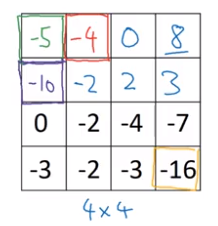 -5 -4 0 8
-10 -2 2 3
0 -2 -4 -7
-3 -2 -3 -16
4×4